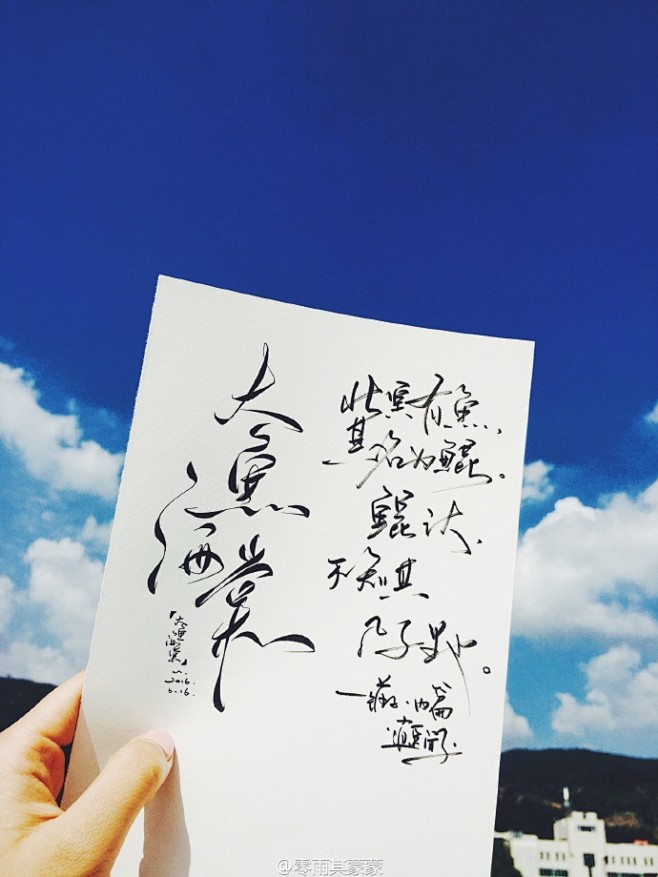 大
鱼
海棠
「大鱼
海棠」
2016.
6.16.
北冥有鱼,
其名为鲲.
鲲之大,
不知其
几千里也。
—庄子·内篇
逍遥游.
@零雨其蒙蒙